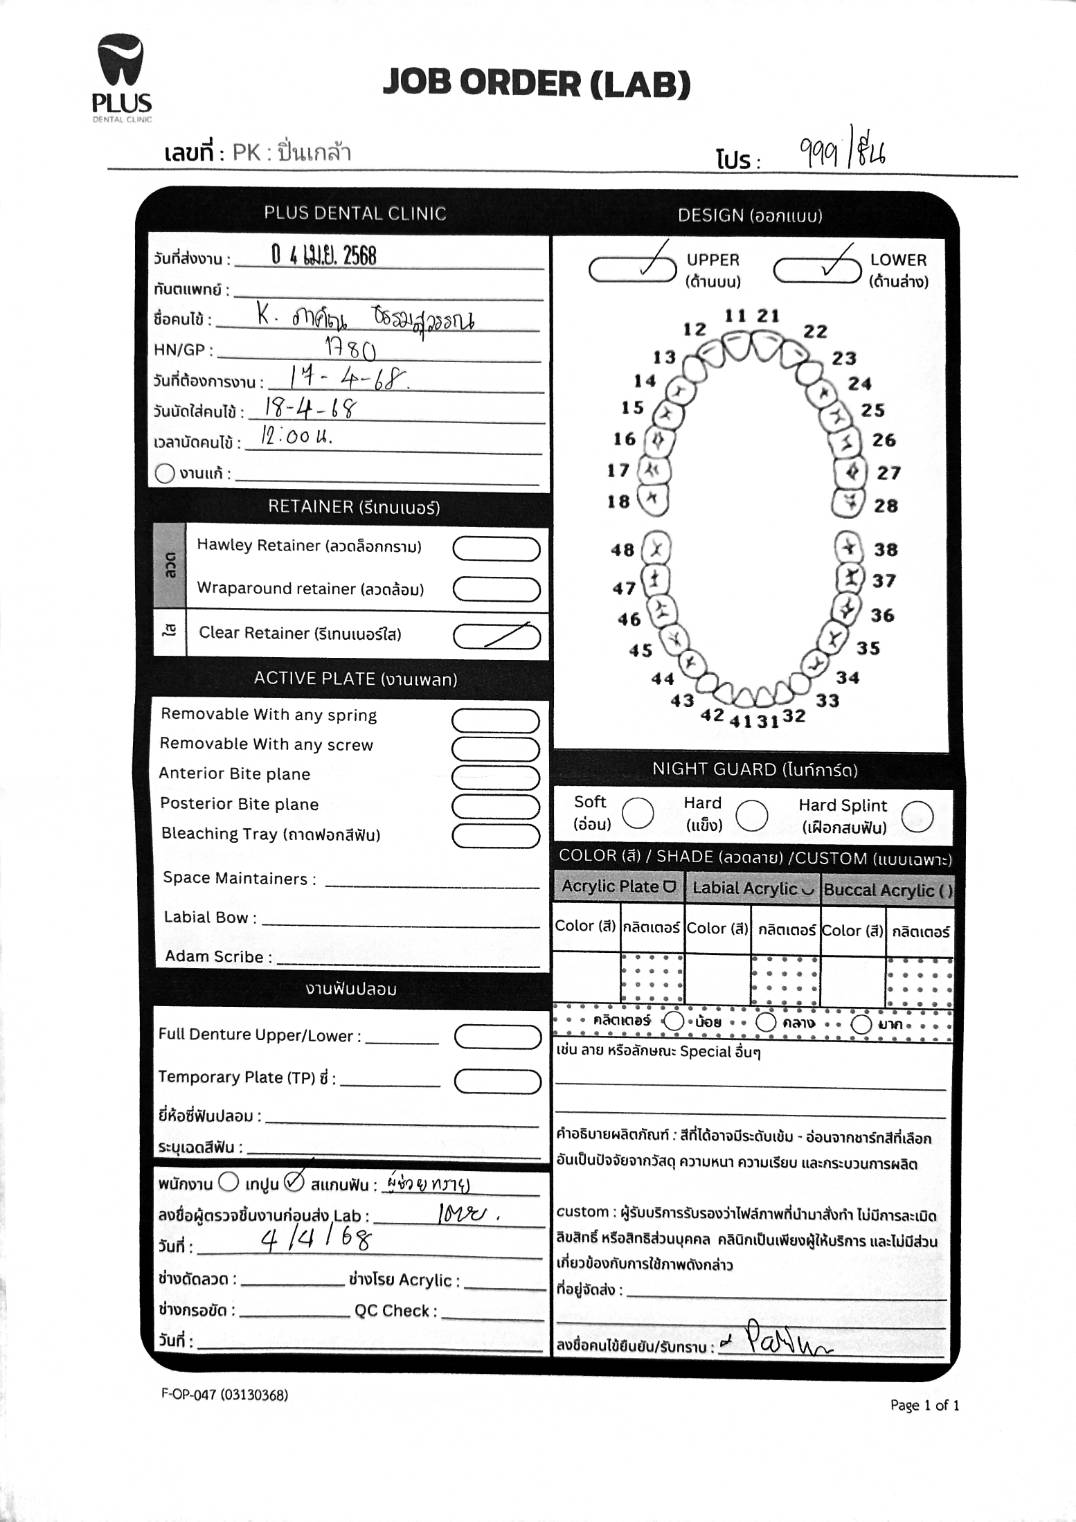 PLUS
DENTAL CLINIC
JOB ORDER (LAB)
เลขที่ : PK : ปิ่นเกล้า
โปร : 999/ชิ้น
PLUS DENTAL CLINIC
วันที่ส่งงาน : 0 4 เม.ย. 2568
ทันตแพทย์ :
ชื่อคนไข้ : K. ภาคิณ ธรรมสุวรรณ
HN/GP : 1780
วันที่ต้องการงาน : 17-4-68.
วันนัดใส่คนไข้ : 18-4-68
เวลานัดคนไข้ : 12:00 น.
งานแก้ :
RETAINER (รีเทนเนอร์)
ลวด
Hawley Retainer (ลวดล็อกกราม)
Wraparound retainer (ลวดล้อม)
ใส
Clear Retainer (รีเทนเนอร์ใส)
ACTIVE PLATE (งานเพลท)
Removable With any spring
Removable With any screw
Anterior Bite plane
Posterior Bite plane
Bleaching Tray (ถาดฟอกสีฟัน)
Space Maintainers :
Labial Bow :
Adam Scribe :
งานฟันปลอม
Full Denture Upper/Lower :
Temporary Plate (TP) ซี่ :
ยี่ห้อซี่ฟันปลอม :
ระบุเฉดสีฟัน :
พนักงาน เทปูน สแกนฟัน : ผู้ช่วย ทราย
ลงชื่อผู้ตรวจชิ้นงานก่อนส่ง Lab :
วันที่ : 4/4/68
ช่างดัดลวด : ช่างโรย Acrylic :
ช่างกรอขัด : QC Check :
วันที่ :
DESIGN (ออกแบบ)
UPPER (ด้านบน)
LOWER (ด้านล่าง)
11 21
12 22
13 23
14 24
15 25
16 26
17 27
18 28
48 38
47 37
46 36
45 35
44 34
43 33
42 41 31 32
NIGHT GUARD (ไนท์การ์ด)
Soft (อ่อน)
Hard (แข็ง)
Hard Splint (เฝือกสบฟัน)
COLOR (สี) / SHADE (ลวดลาย) /CUSTOM (แบบเฉพาะ)
Acrylic Plate Labial Acrylic Buccal Acrylic ( )
Color (สี) กลิตเตอร์ Color (สี) กลิตเตอร์ Color (สี) กลิตเตอร์
กลิตเตอร์ น้อย กลาง มาก
เช่น ลาย หรือลักษณะ Special อื่นๆ
คำอธิบายผลิตภัณฑ์ : สีที่ได้อาจมีระดับเข้ม - อ่อนจากชาร์ทสีที่เลือก
อันเป็นปัจจัยจากวัสดุ ความหนา ความเรียบ และกระบวนการผลิต
custom : ผู้รับบริการรับรองว่าไฟล์ภาพที่นำมาสั่งทำ ไม่มีการละเมิด
ลิขสิทธิ์ หรือสิทธิส่วนบุคคล คลินิกเป็นเพียงผู้ให้บริการ และไม่มีส่วน
เกี่ยวข้องกับการใช้ภาพดังกล่าว
ที่อยู่จัดส่ง :
ลงชื่อคนไข้ยืนยัน/รับทราบ :
F-OP-047 (03130368)
Page 1 of 1